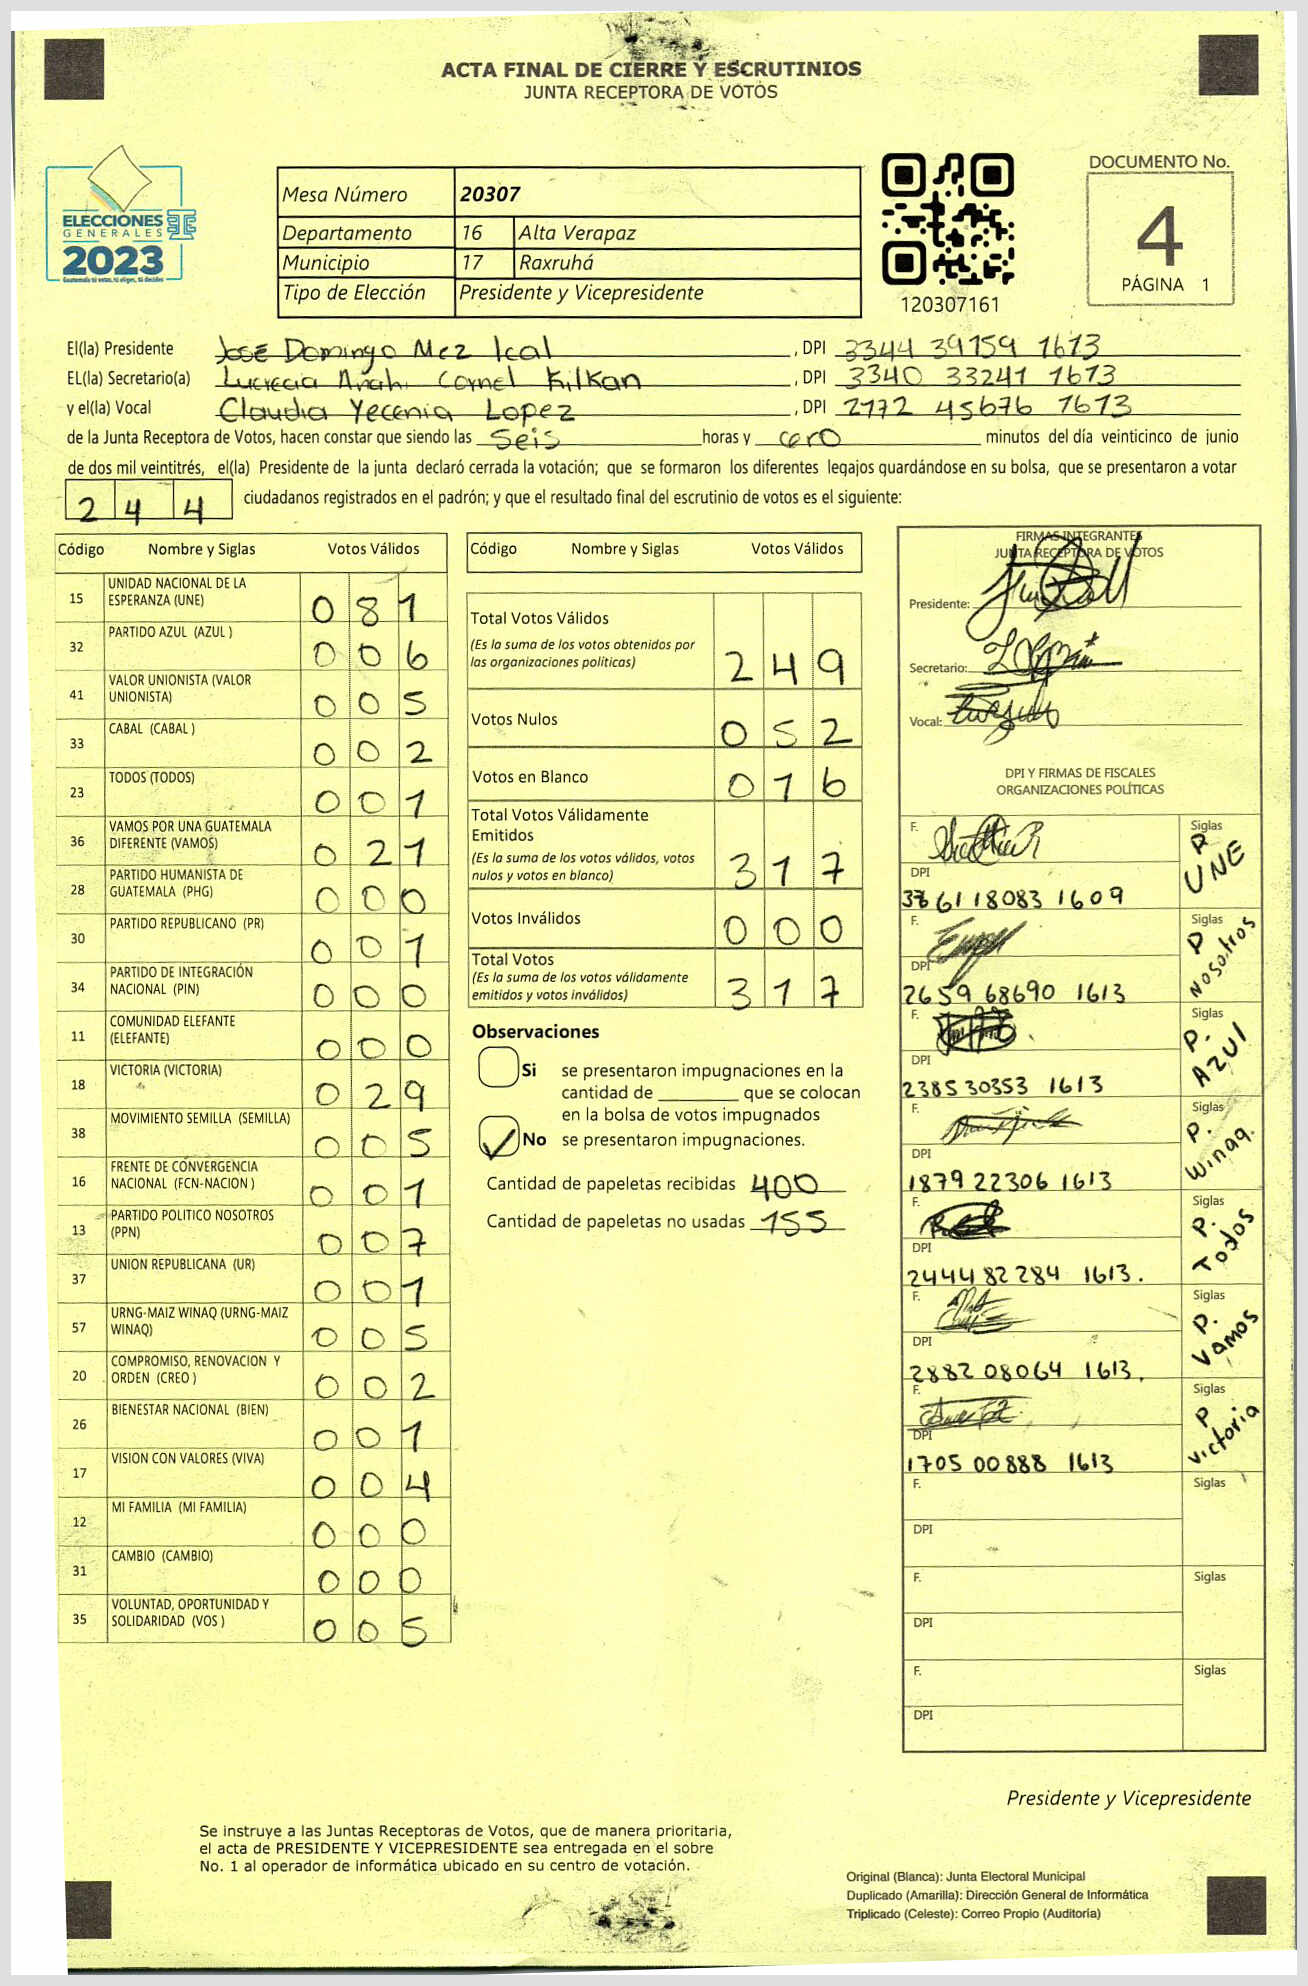 ACTA FINAL DE CIERRE Y ESCRUTINIOS
JUNTA RECEPTORA DE VOTOS
ELECCIONES
GENERALES
2023
Guatemala tú votas, tú eliges, tú decides
Mesa Número 20307
Departamento 16 Alta Verapaz
Municipio 17 Raxruhá
Tipo de Elección Presidente y Vicepresidente
120307161
DOCUMENTO No.
4
PÁGINA 1
El(la) Presidente José Domingo Mez Ical , DPI 3344 39159 1613
EL(la) Secretario(a) Lucrecia Anahi Cornel Kilkan , DPI 3340 33241 1613
y el(la) Vocal Claudia Yecenia Lopez , DPI 2172 45676 1613
de la Junta Receptora de Votos, hacen constar que siendo las Seis horas y cero minutos del día veinticinco de junio
de dos mil veintitrés, el(la) Presidente de la junta declaró cerrada la votación; que se formaron los diferentes legajos guardándose en su bolsa, que se presentaron a votar
244 ciudadanos registrados en el padrón; y que el resultado final del escrutinio de votos es el siguiente:
Código Nombre y Siglas Votos Válidos
15 UNIDAD NACIONAL DE LA ESPERANZA (UNE) 081
32 PARTIDO AZUL (AZUL ) 006
41 VALOR UNIONISTA (VALOR UNIONISTA) 005
33 CABAL (CABAL ) 002
23 TODOS (TODOS) 001
36 VAMOS POR UNA GUATEMALA DIFERENTE (VAMOS) 021
28 PARTIDO HUMANISTA DE GUATEMALA (PHG) 000
30 PARTIDO REPUBLICANO (PR) 001
34 PARTIDO DE INTEGRACIÓN NACIONAL (PIN) 000
11 COMUNIDAD ELEFANTE (ELEFANTE) 000
18 VICTORIA (VICTORIA) 029
38 MOVIMIENTO SEMILLA (SEMILLA) 005
16 FRENTE DE CONVERGENCIA NACIONAL (FCN-NACION ) 001
13 PARTIDO POLITICO NOSOTROS (PPN) 007
37 UNION REPUBLICANA (UR) 001
57 URNG-MAIZ WINAQ (URNG-MAIZ WINAQ) 005
20 COMPROMISO, RENOVACION Y ORDEN (CREO ) 002
26 BIENESTAR NACIONAL (BIEN) 001
17 VISION CON VALORES (VIVA) 004
12 MI FAMILIA (MI FAMILIA) 000
31 CAMBIO (CAMBIO) 000
35 VOLUNTAD, OPORTUNIDAD Y SOLIDARIDAD (VOS ) 005
Código Nombre y Siglas Votos Válidos
Total Votos Válidos
(Es la suma de los votos obtenidos por
las organizaciones políticas) 249
Votos Nulos 052
Votos en Blanco 016
Total Votos Válidamente
Emitidos
(Es la suma de los votos válidos, votos
nulos y votos en blanco) 317
Votos Inválidos 000
Total Votos
(Es la suma de los votos válidamente
emitidos y votos inválidos) 317
Observaciones
Si se presentaron impugnaciones en la
cantidad de ________ que se colocan
en la bolsa de votos impugnados
No se presentaron impugnaciones.
Cantidad de papeletas recibidas 400
Cantidad de papeletas no usadas 155
FIRMAS INTEGRANTES
JUNTA RECEPTORA DE VOTOS
Presidente:
Secretario:
Vocal:
DPI Y FIRMAS DE FISCALES
ORGANIZACIONES POLÍTICAS
F. Siglas P UNE
DPI
61 18083 1609
F. Siglas P Nosotros
DPI
2659 68690 1613
F. Siglas P. AZUl
DPI
2385 30353 1613
F. Siglas P. Winaq.
DPI
1879 22306 1613
F. Siglas P. Todos
DPI
2444 82 284 1613.
F. Siglas P. Vamos
DPI
2882 08064 1613.
F. Siglas P victoria
DPI
1705 00888 1613
F. Siglas
DPI
F. Siglas
DPI
F. Siglas
DPI
Presidente y Vicepresidente
Se instruye a las Juntas Receptoras de Votos, que de manera prioritaria,
el acta de PRESIDENTE Y VICEPRESIDENTE sea entregada en el sobre
No. 1 al operador de informática ubicado en su centro de votación.
Original (Blanca): Junta Electoral Municipal
Duplicado (Amarilla): Dirección General de Informática
Triplicado (Celeste): Correo Propio (Auditoría)